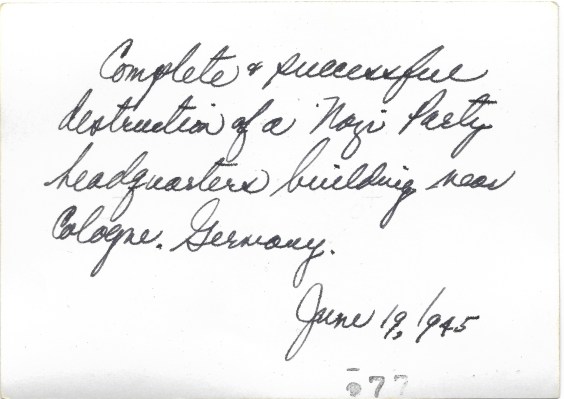 Complete & successful
destruction of a Nazi Party
headquarters building near
Cologne. Germany.
June 19, 1945
77